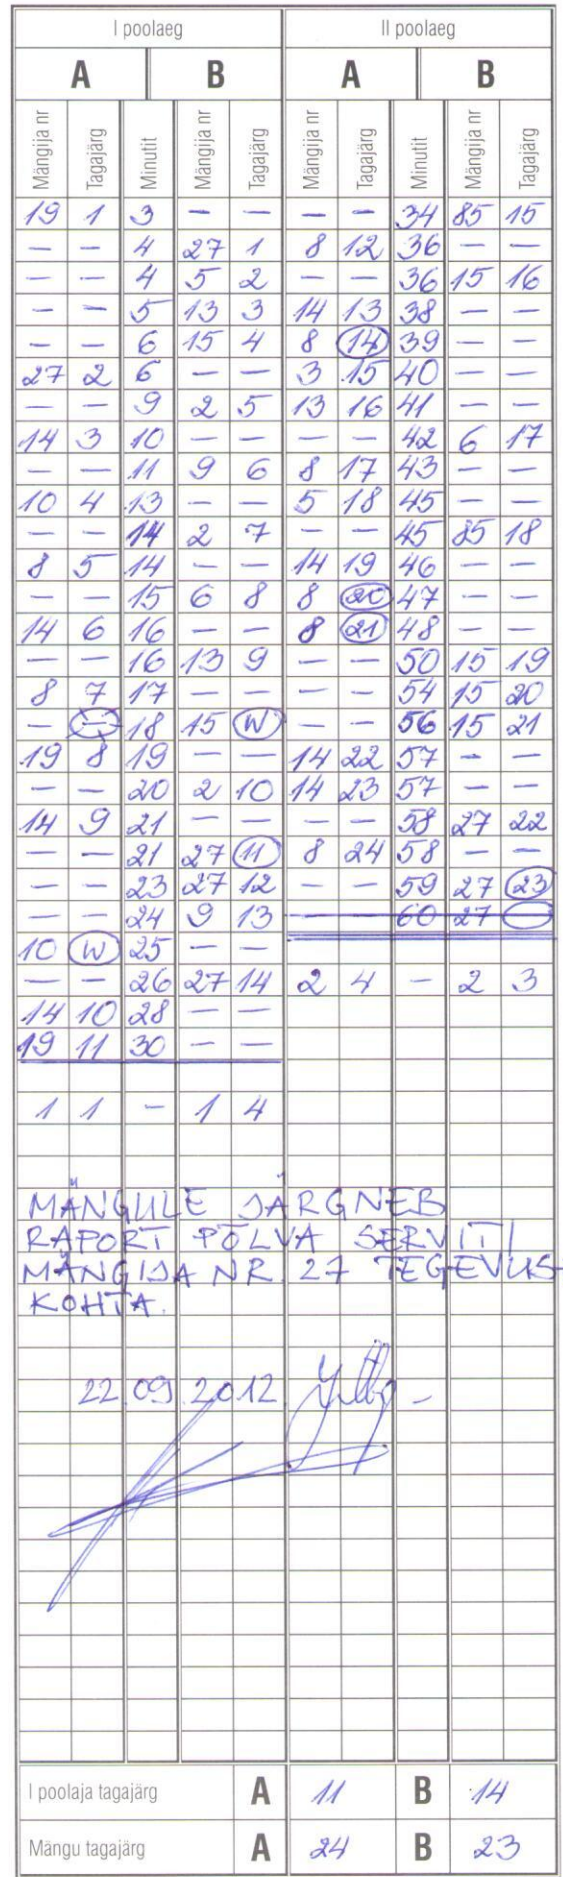 I poolaeg II poolaeg
A B A B
Mängija nr Tagajärg Minutit Mängija nr Tagajärg Mängija nr Tagajärg Minutit Mängija nr Tagajärg
19 1 3 — — — — 34 85 15
— — 4 27 1 8 12 36 — —
— — 4 5 2 — — 36 15 16
— — 5 13 3 14 13 38 — —
— — 6 15 4 8 14 39 — —
27 2 6 — — 3 15 40 — —
— — 9 2 5 13 16 41 — —
14 3 10 — — — — 42 6 17
— — 11 9 6 8 17 43 — —
10 4 13 — — 5 18 45 — —
— — 14 2 7 — — 45 85 18
8 5 14 — — 14 19 46 — —
— — 15 6 8 8 20 47 — —
14 6 16 — — 8 21 48 — —
— — 16 13 9 — — 50 15 19
8 7 17 — — — — 54 15 20
— — 18 15 W — — 56 15 21
19 8 19 — — 14 22 57 — —
— — 20 2 10 14 23 57 — —
14 9 21 — — — — 58 27 22
— — 21 27 11 8 24 58 — —
— — 23 27 12 — — 59 27 23
— — 24 9 13 — — 60 27
10 W 25 — —
— — 26 27 14 2 4 — 2 3
14 10 28 — —
19 11 30 — —
1 1 — 1 4
MÄNGULE JÄRGNEB
RAPORT PÕLVA SERVITI
MÄNGIJA NR. 27 TEGEVUS-
KOHTA.
22.09.2012
I poolaja tagajärg A 11 B 14
Mängu tagajärg A 24 B 23